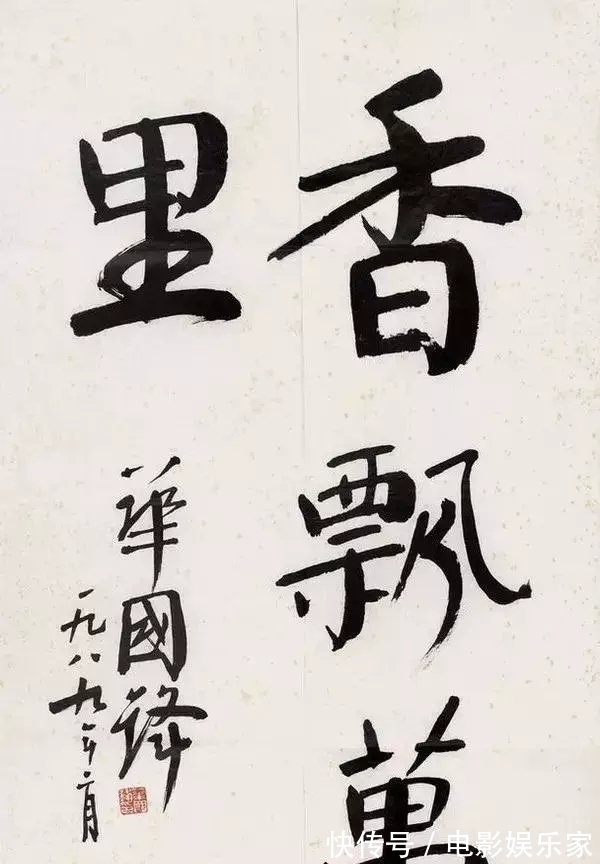 香飘萬
里
華國鋒
一九八九年二月
快传号/电影娱乐家